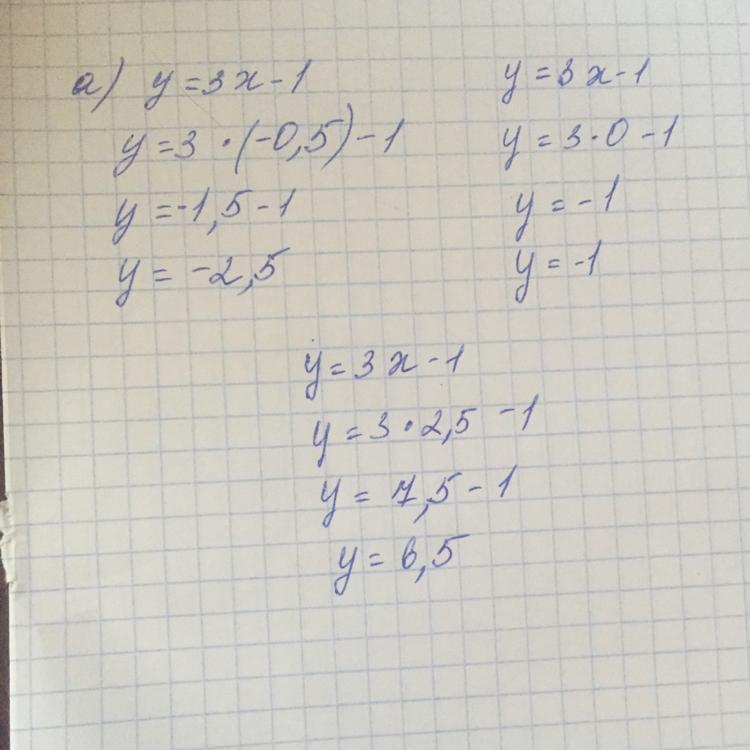 а) y = 3x - 1
y = 3 · (-0,5) - 1
y = -1,5 - 1
y = -2,5
y = 3x - 1
y = 3 · 0 - 1
y = -1
y = -1
y = 3x - 1
y = 3 · 2,5 - 1
y = 7,5 - 1
y = 6,5